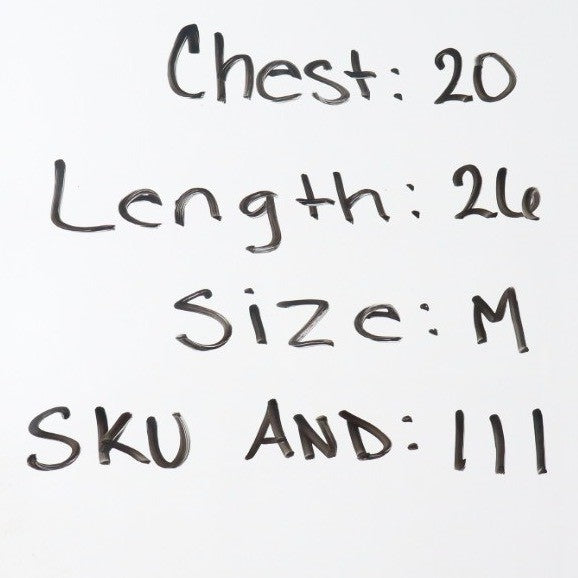 Chest: 20
Length: 26
Size: M
SKU AND: 111